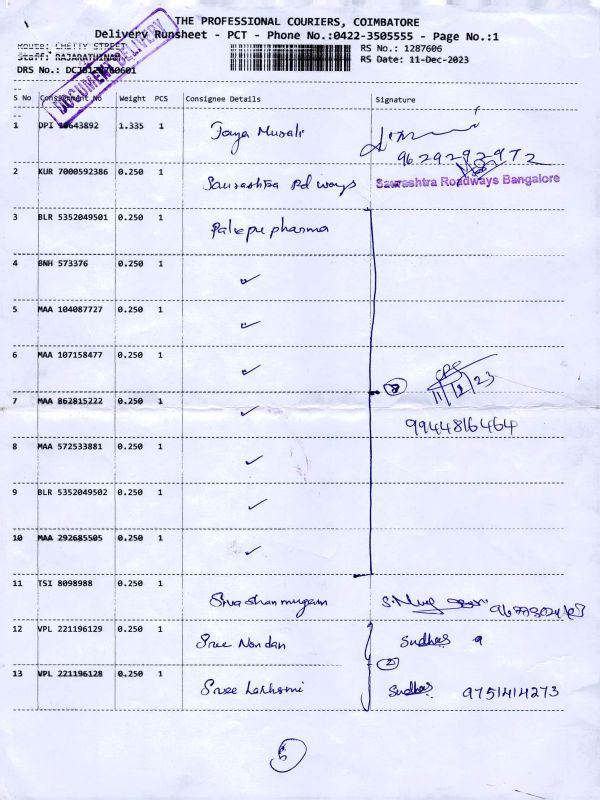 THE PROFESSIONAL COURIERS, COIMBATORE
Delivery Runsheet - PCT - Phone No.:0422-3505555 - Page No.:1
Route: CHETTY STREET
RS No.: 1287606
Staff: RAJARATHINAM
RS Date: 11-Dec-2023
DRS No.:
DOCUMENT DELIVERY
S No Consignment No Weight PCS Consignee Details Signature
1 DPI 1.335 1 Jaya Murali
9629292972
2 KUR 7000592386 0.250 1 Saurashtra Rd ways Saurashtra Roadways Bangalore
3 BLR 5352049501 0.250 1 pharma
4 BNH 573376 0.250 1 ✓
5 MAA 104087727 0.250 1 ✓
6 MAA 107158477 0.250 1 ✓
11/12/23
7 MAA 862815222 0.250 1 ✓ 8
9944816464
8 MAA 572533881 0.250 1 ✓
9 BLR 5352049502 0.250 1 ✓
10 MAA 292685505 0.250 1 ✓
11 TSI 8098988 0.250 1 Siva shanmugam
12 VPL 221196129 0.250 1 Sree Nandan Sudhas 9
2
13 VPL 221196128 0.250 1 Sree Lakshmi Sudhas 9751414273
5